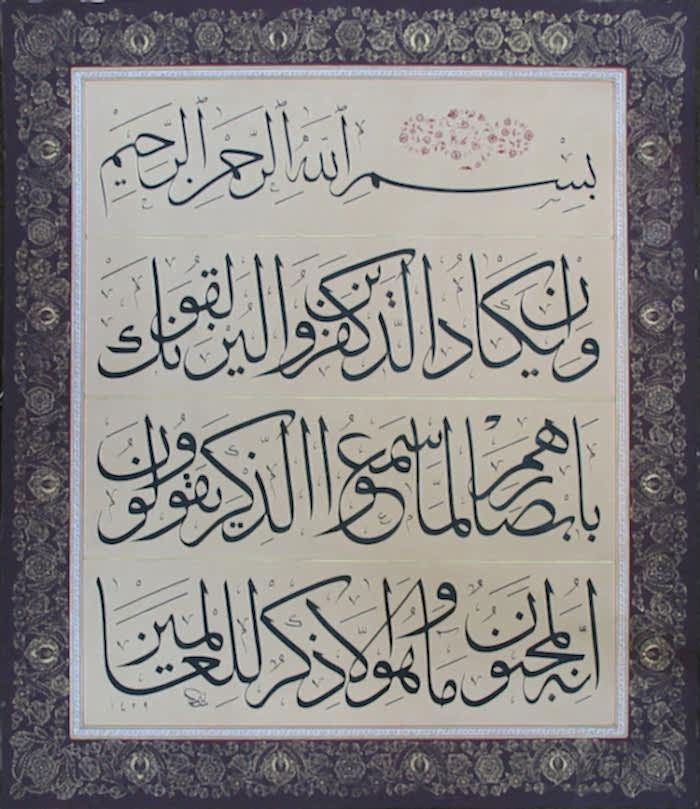 بسم الله الرحمن الرحيم
وان يكاد الذين كفروا ليزلقونك
بابصارهم لما سمعوا الذكر ويقولون
انه لمجنون وما هو الا ذكر للعالمين
١٤٢٩